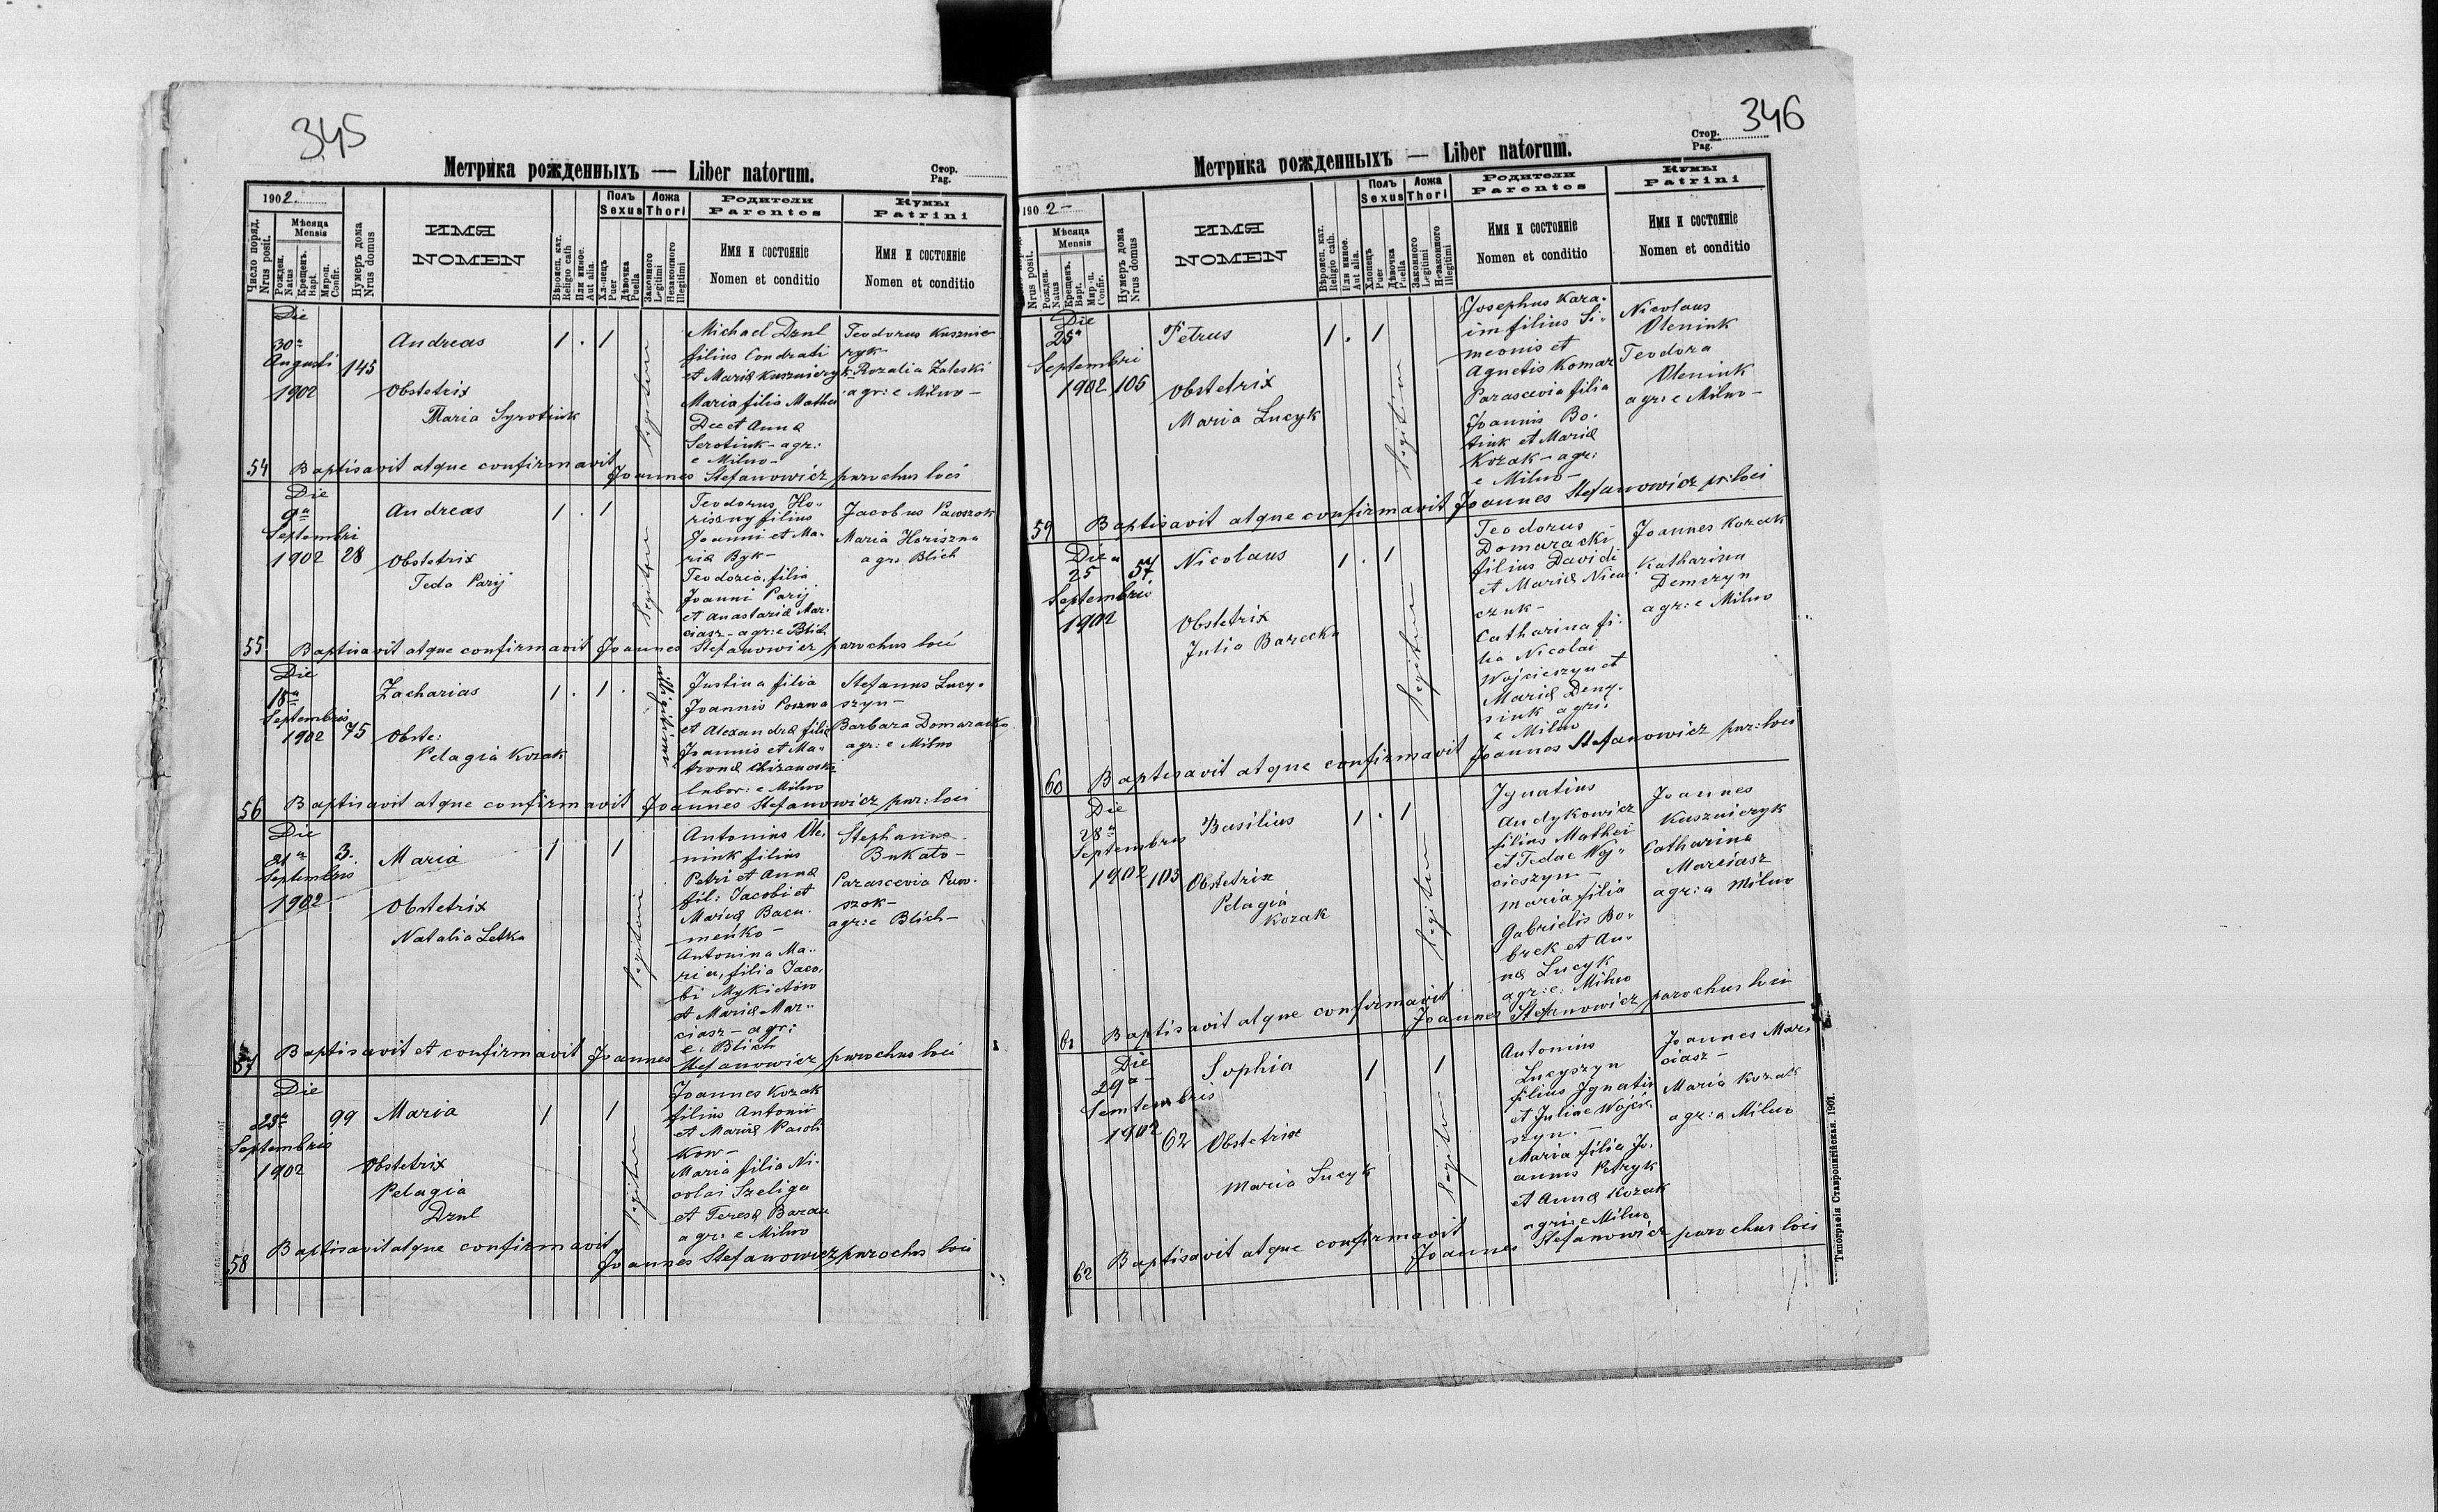 345
Метрика рожденныхъ — Liber natorum.
Стор.
Pag.
1902
Число поряд.
Nrus posit.
Мѣсяца
Mensis
Рожден.
Natus
Крещенъ.
Bapt.
Мироп.
Confir.
Нумеръ дома
Nrus domus
ИМЯ
NOMEN
Вѣроисп. кат.
Religio cath
Или иное.
Aut alia.
Полъ
Sexus
Хлопецъ
Puer
Дѣвочка
Puella
Ложа
Thori
Законного
Legitimi
Незаконного
Illegitimi
Родители
Parentes
Имя и состоянiе
Nomen et conditio
Кумы
Patrini
Имя и состоянiе
Nomen et conditio
Die
30ª
Augusti
1902
145
Andreas
Obstetrix
Maria Syrotiuk
1 . 1
legitimi
Michael Dzul
filius Condrati
et Maria Kusznieryk
Maria filia Mathei
Dec et Anna
Serotiuk - agr:
e Milno -
Teodorus Kusznie
ryk
Rozalia Zaleski
agr: e Milno -
54 Baptisavit atque confirmavit
Joannes Stefanowicz parochus loci
Die
9ª
Septembri
1902
28
Andreas
Obstetrix
Teda Parij
1 . 1
legitimi
Teodorus Ho-
riszny filius
Joanni et Ma-
ria Byk -
Teodozia filia
Joanni Parij
et Anastazia Mar-
ciasz - agr: e Blich
Jacobus Pawszok
Maria Horiszna
agr: Blich
55 Baptisavit atque confirmavit Joannes Stefanowicz parochus loci
Die
18ª
Septembris
1902
75
Zacharias
Obste:
Pelagia Kozak
1 . 1 .
illegitimi
Justina filia
Joannis Poszwa
et Alexandra filia
Joannis et Ma-
trona
labor: e Milno
Stefanus Lucy-
szyn -
Barbara Domaracka
agr: e Milno
56 Baptisavit atque confirmavit Joannes Stefanowicz par: loci
Die
21ª
Septembris
1902
3.
Maria
Obstetrix
Natalia Letka
1 1
legitimi
Antonius Ole-
niuk filius
Petri et Anna
fil: Jacobi et
Maria Bacu-
meńko -
Antonina Ma-
ria, filia Jaco-
bi Mykietów
et Maria Mar-
ciasz - agr:
e: Blich
Stephanus
Bukato -
Parascevia Paw-
szok -
agr: e Blich -
57 Baptisavit et confirmavit Joannes Stefanowicz parochus loci
Die
23ª
Septembris
1902
99
Maria
Obstetrix
Pelagia
Dzul
1 1
legitimi
Joannes Kozak
filius Antonii
et Maria
kow -
Maria filia Ni-
colai Szeliga
et Teresa Baran
agr: e Milno
58 Baptisavit atque confirmavit
Joannes Stefanowicz parochus loci
346
Метрика рожденныхъ — Liber natorum.
Стор.
Pag.
1902 -
Nrus posit.
Мѣсяца
Mensis
Рожден.
Natus
Крещенъ.
Bapt.
Мироп.
Confir.
Нумеръ дома
Nrus domus
ИМЯ
NOMEN
Вѣроисп. кат.
Religio cath.
Или иное.
Aut alia.
Полъ
Sexus
Хлопецъ
Puer
Дѣвочка
Puella
Ложа
Thori
Законного
Legitimi
Незаконного
Illegitimi
Родители
Parentes
Имя и состоянiе
Nomen et conditio
Кумы
Patrini
Имя и состоянiе
Nomen et conditio
Die
25ª
Septembri
1902
105
Petrus
Obstetrix
Maria Lucyk
1 . 1
legitimi
Josephus Kara-
im filius Si-
meonis et
Agnetis Komar
Parascevia filia
Joannis Bo-
tiuk et Maria
Kozak - agr:
e Milno -
Nicolaus
Oleniuk
Teodora
Oleniuk
agr: e Milno -
59 Baptisavit atque confirmavit Joannes Stefanowicz pr: loci
Die
25ª
Septembris
1902
57
Nicolaus
Obstetrix
Julia Barecka
1 . 1
legitimi
Teodorus
Domaracki
filius Davidi
et Maria
czuk -
Catharina fi-
lia Nicolai
Wojcieszyn et
Maria Deny-
siuk agr:
e Milno
Joannes Kozak
Katharina
Demczyn
agr: e Milno
60 Baptisavit atque confirmavit Joannes Stefanowicz par: loci
Die
28ª
Septembris
1902
103
Basilius
Obstetrix
Pelagia
Kozak
1 . 1
legitimi
Ignatius
Andykowicz
filius Mathei
et Tedae Woj-
cieszyn -
Maria filia
Gabrielis Bo-
brek et An-
na Lucyk
agr: e: Milno
Joannes
Kuszniczyk
Catharina
Marciasz
agr: a Milno
61 Baptisavit atque confirmavit
Joannes Stefanowicz parochus loci
Die
29ª -
Semtembris
1902
62
Sophia
Obstetrix
Maria Lucyk
1 1
legitimi
Antonius
Lucyszyn
filius Ignatii
et Juliae Wojcie
szyn. -
Maria filia Jo-
annis Petryk
et Anna Kozak
agri: e Milno
Joannes Mar-
ciasz -
Maria Kozak
agr: a Milno
62 Baptisavit atque confirmavit
Joannes Stefanowicz parochus loci
Типографiя Ставропигiйская. 1901.